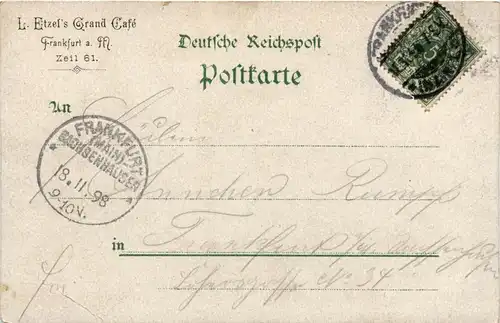 L. Etzel's Grand Café
Frankfurt a. M.
Zeil 61.
Deutsche Reichspost
Postkarte
FRANKFURT
5
An
Fräulein
FRANKFURT
(MAIN)-
SACHSENHAUSEN
18.11.98
9-10V.
Ännchen Rumpf
in Frankfurt a/M Sachsenhausen
N° 34